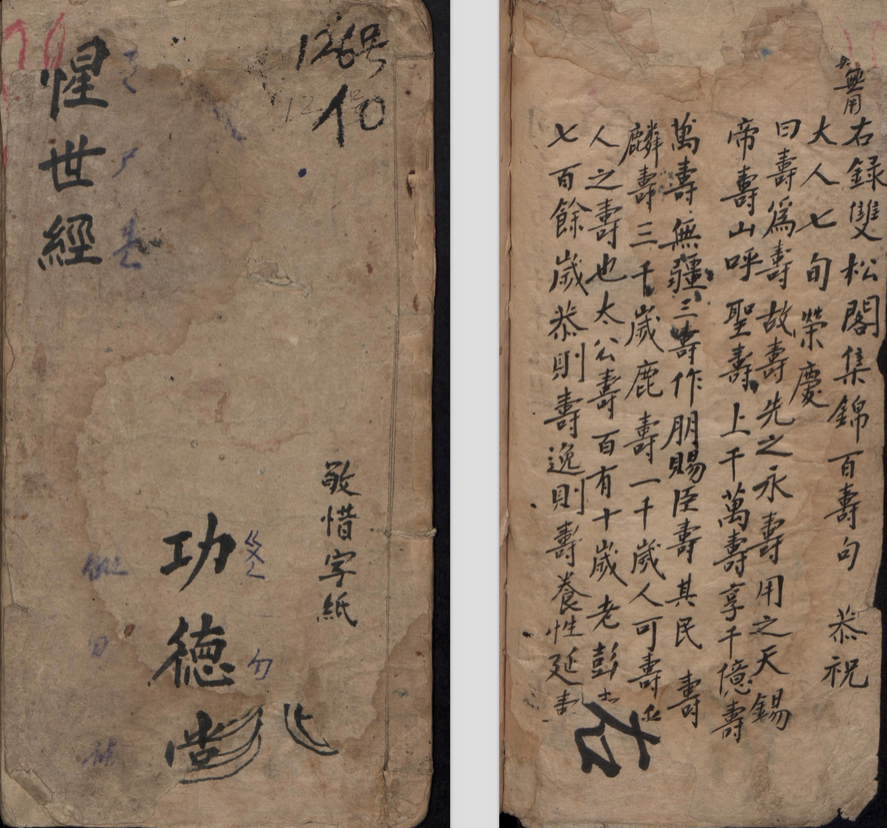 126号
10
惺世經
敬惜字紙
功德堂
無用
右録雙松閣集錦百壽句 恭祝
大人七旬榮慶
曰壽爲壽故壽先之永壽用之天錫
帝壽山呼聖壽上千萬壽享千億壽
萬壽無疆三壽作朋賜臣壽其民壽
麟壽三千歲鹿壽一千歲人可壽
人之壽也太公壽百有十歲老彭
七百餘歲恭則壽逸則壽養性延壽
右